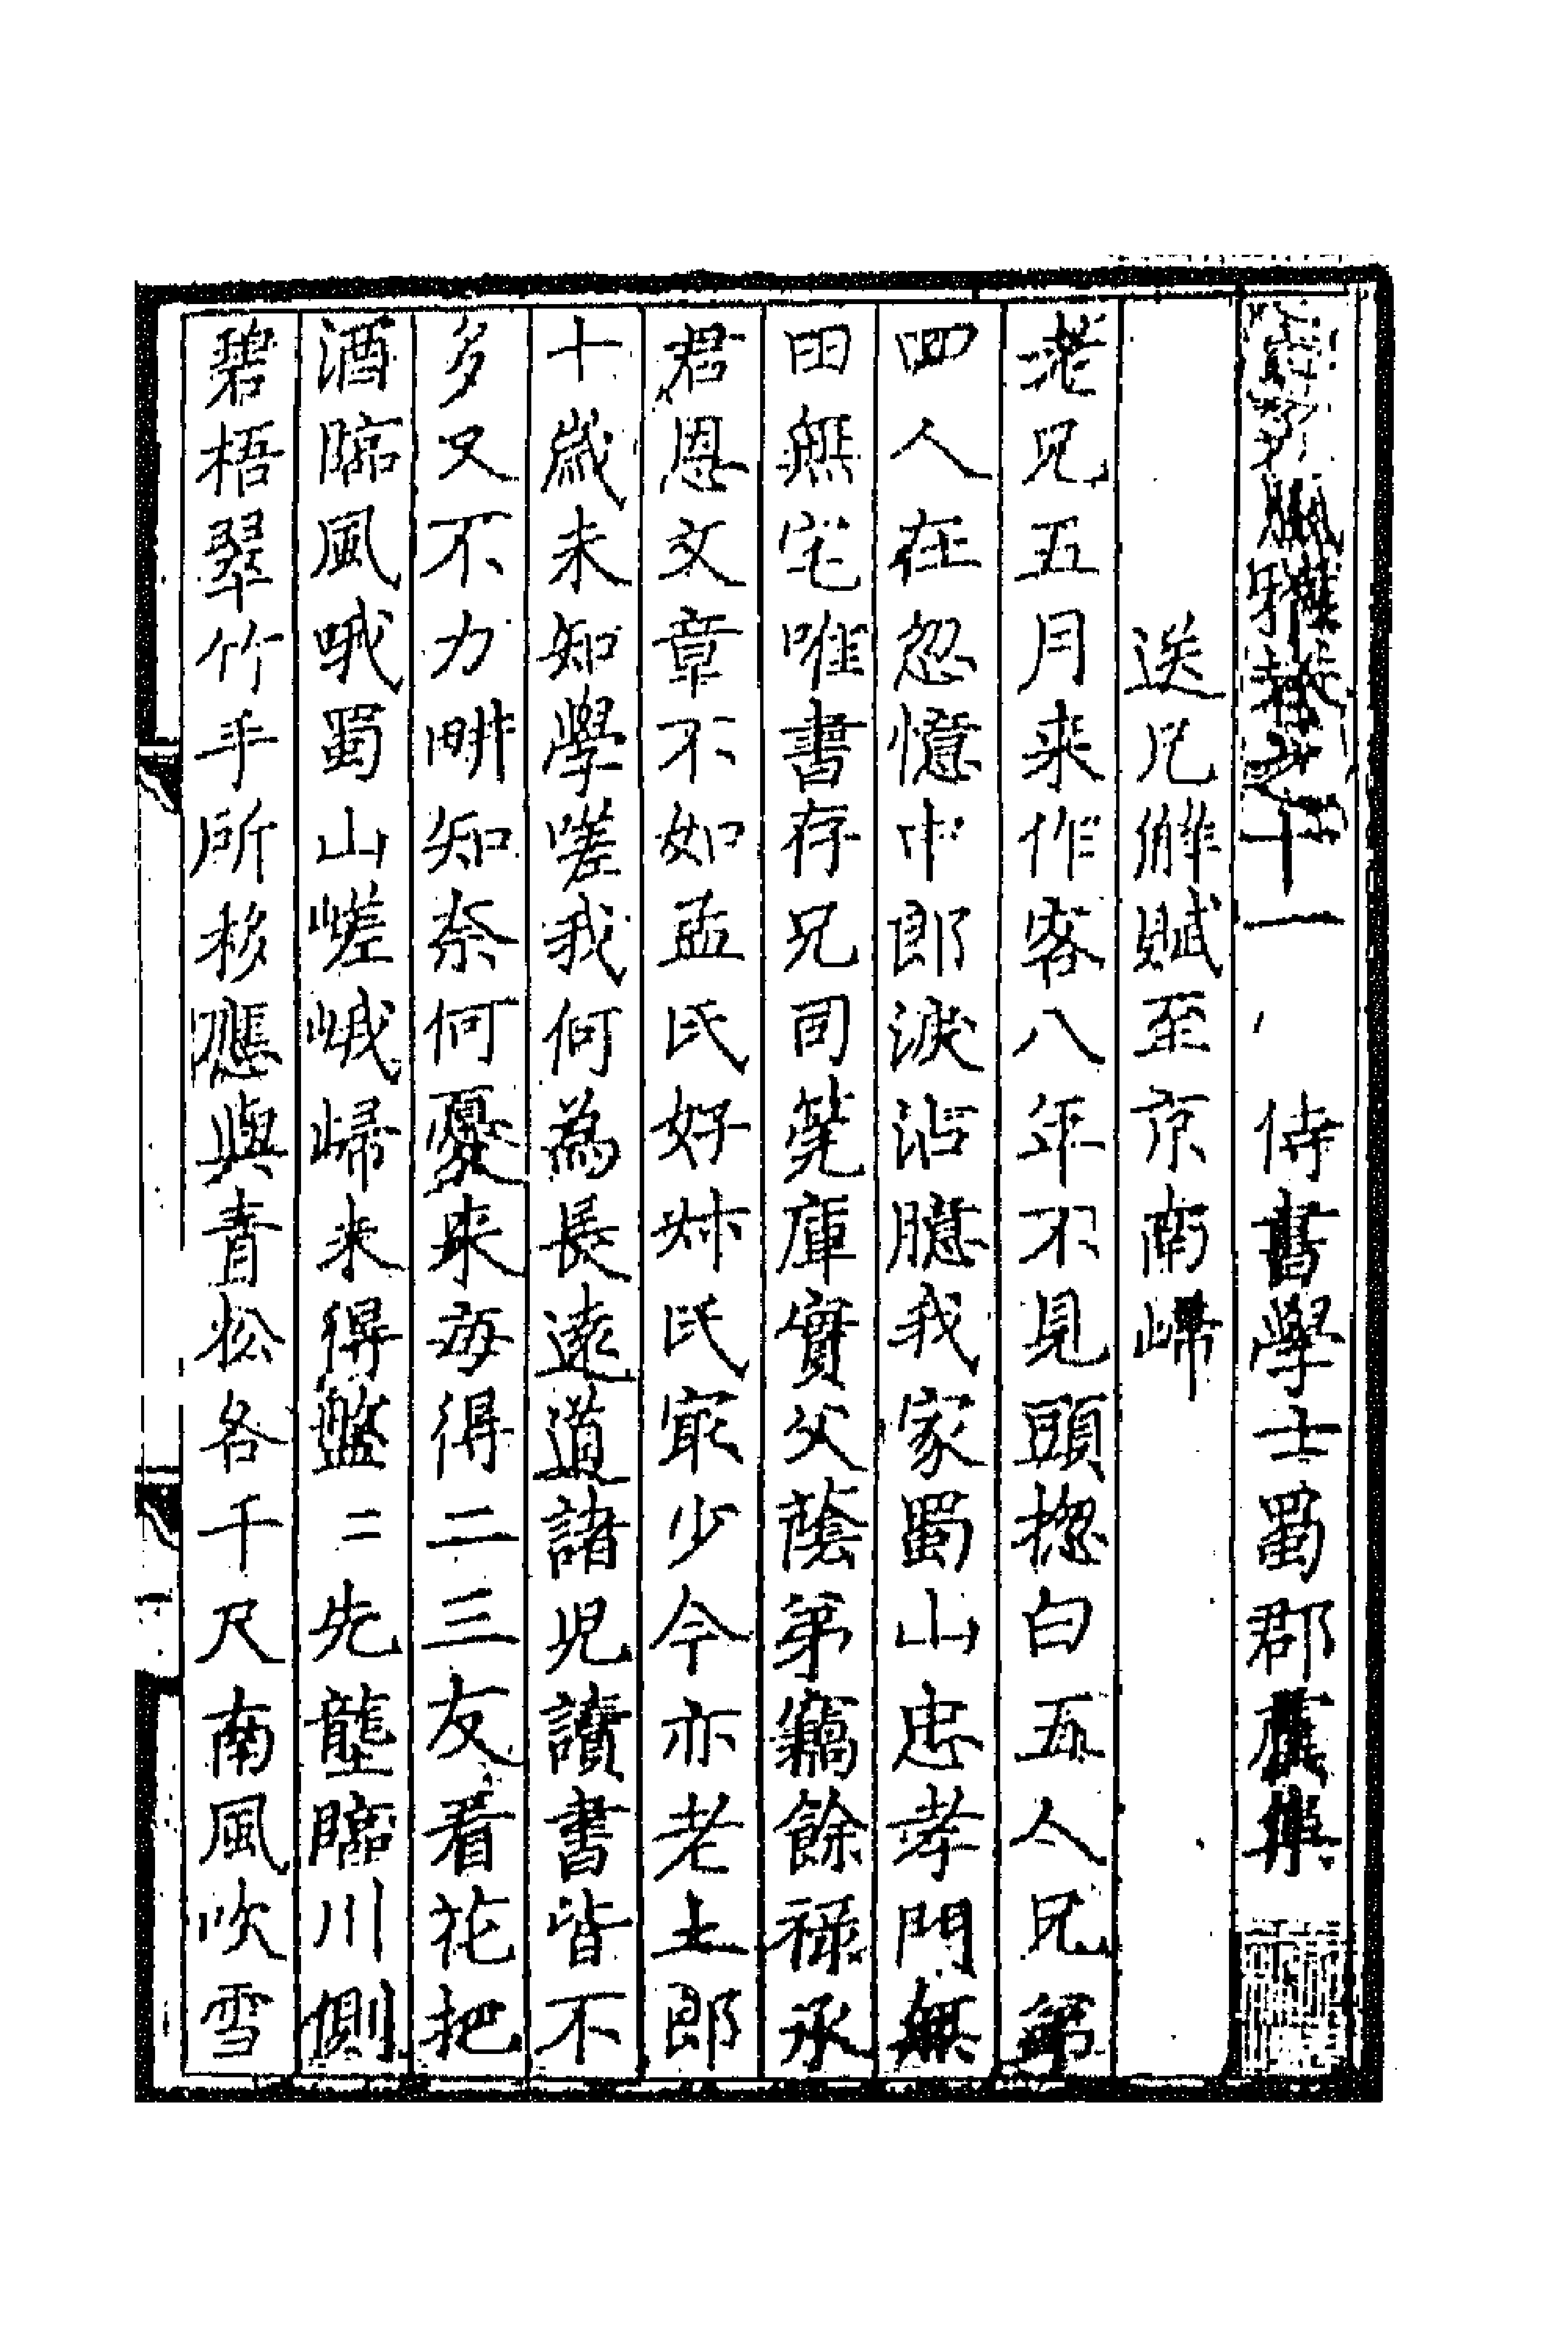 風雅卷之十一 侍書學士蜀郡虞集
送兄觧賦至京南歸
老兄五月来作客八年不見頭揔白五人兄弟
四人在忽憶中郎淚沾臆我家蜀山忠孝門無
田無宅唯書存兄司筦庫實父蔭弟竊餘禄承
君恩文章不如孟氏好叔氏冣少今亦老土郎
十歲未知學嗟我何為長遠道諸児讀書皆不
多又不力畊知奈何憂来每得二三友看花把
酒臨風哦蜀山嵯峨歸未得盤〻先壟臨川側
碧梧翠竹手所移應與青松各千尺南風吹雪